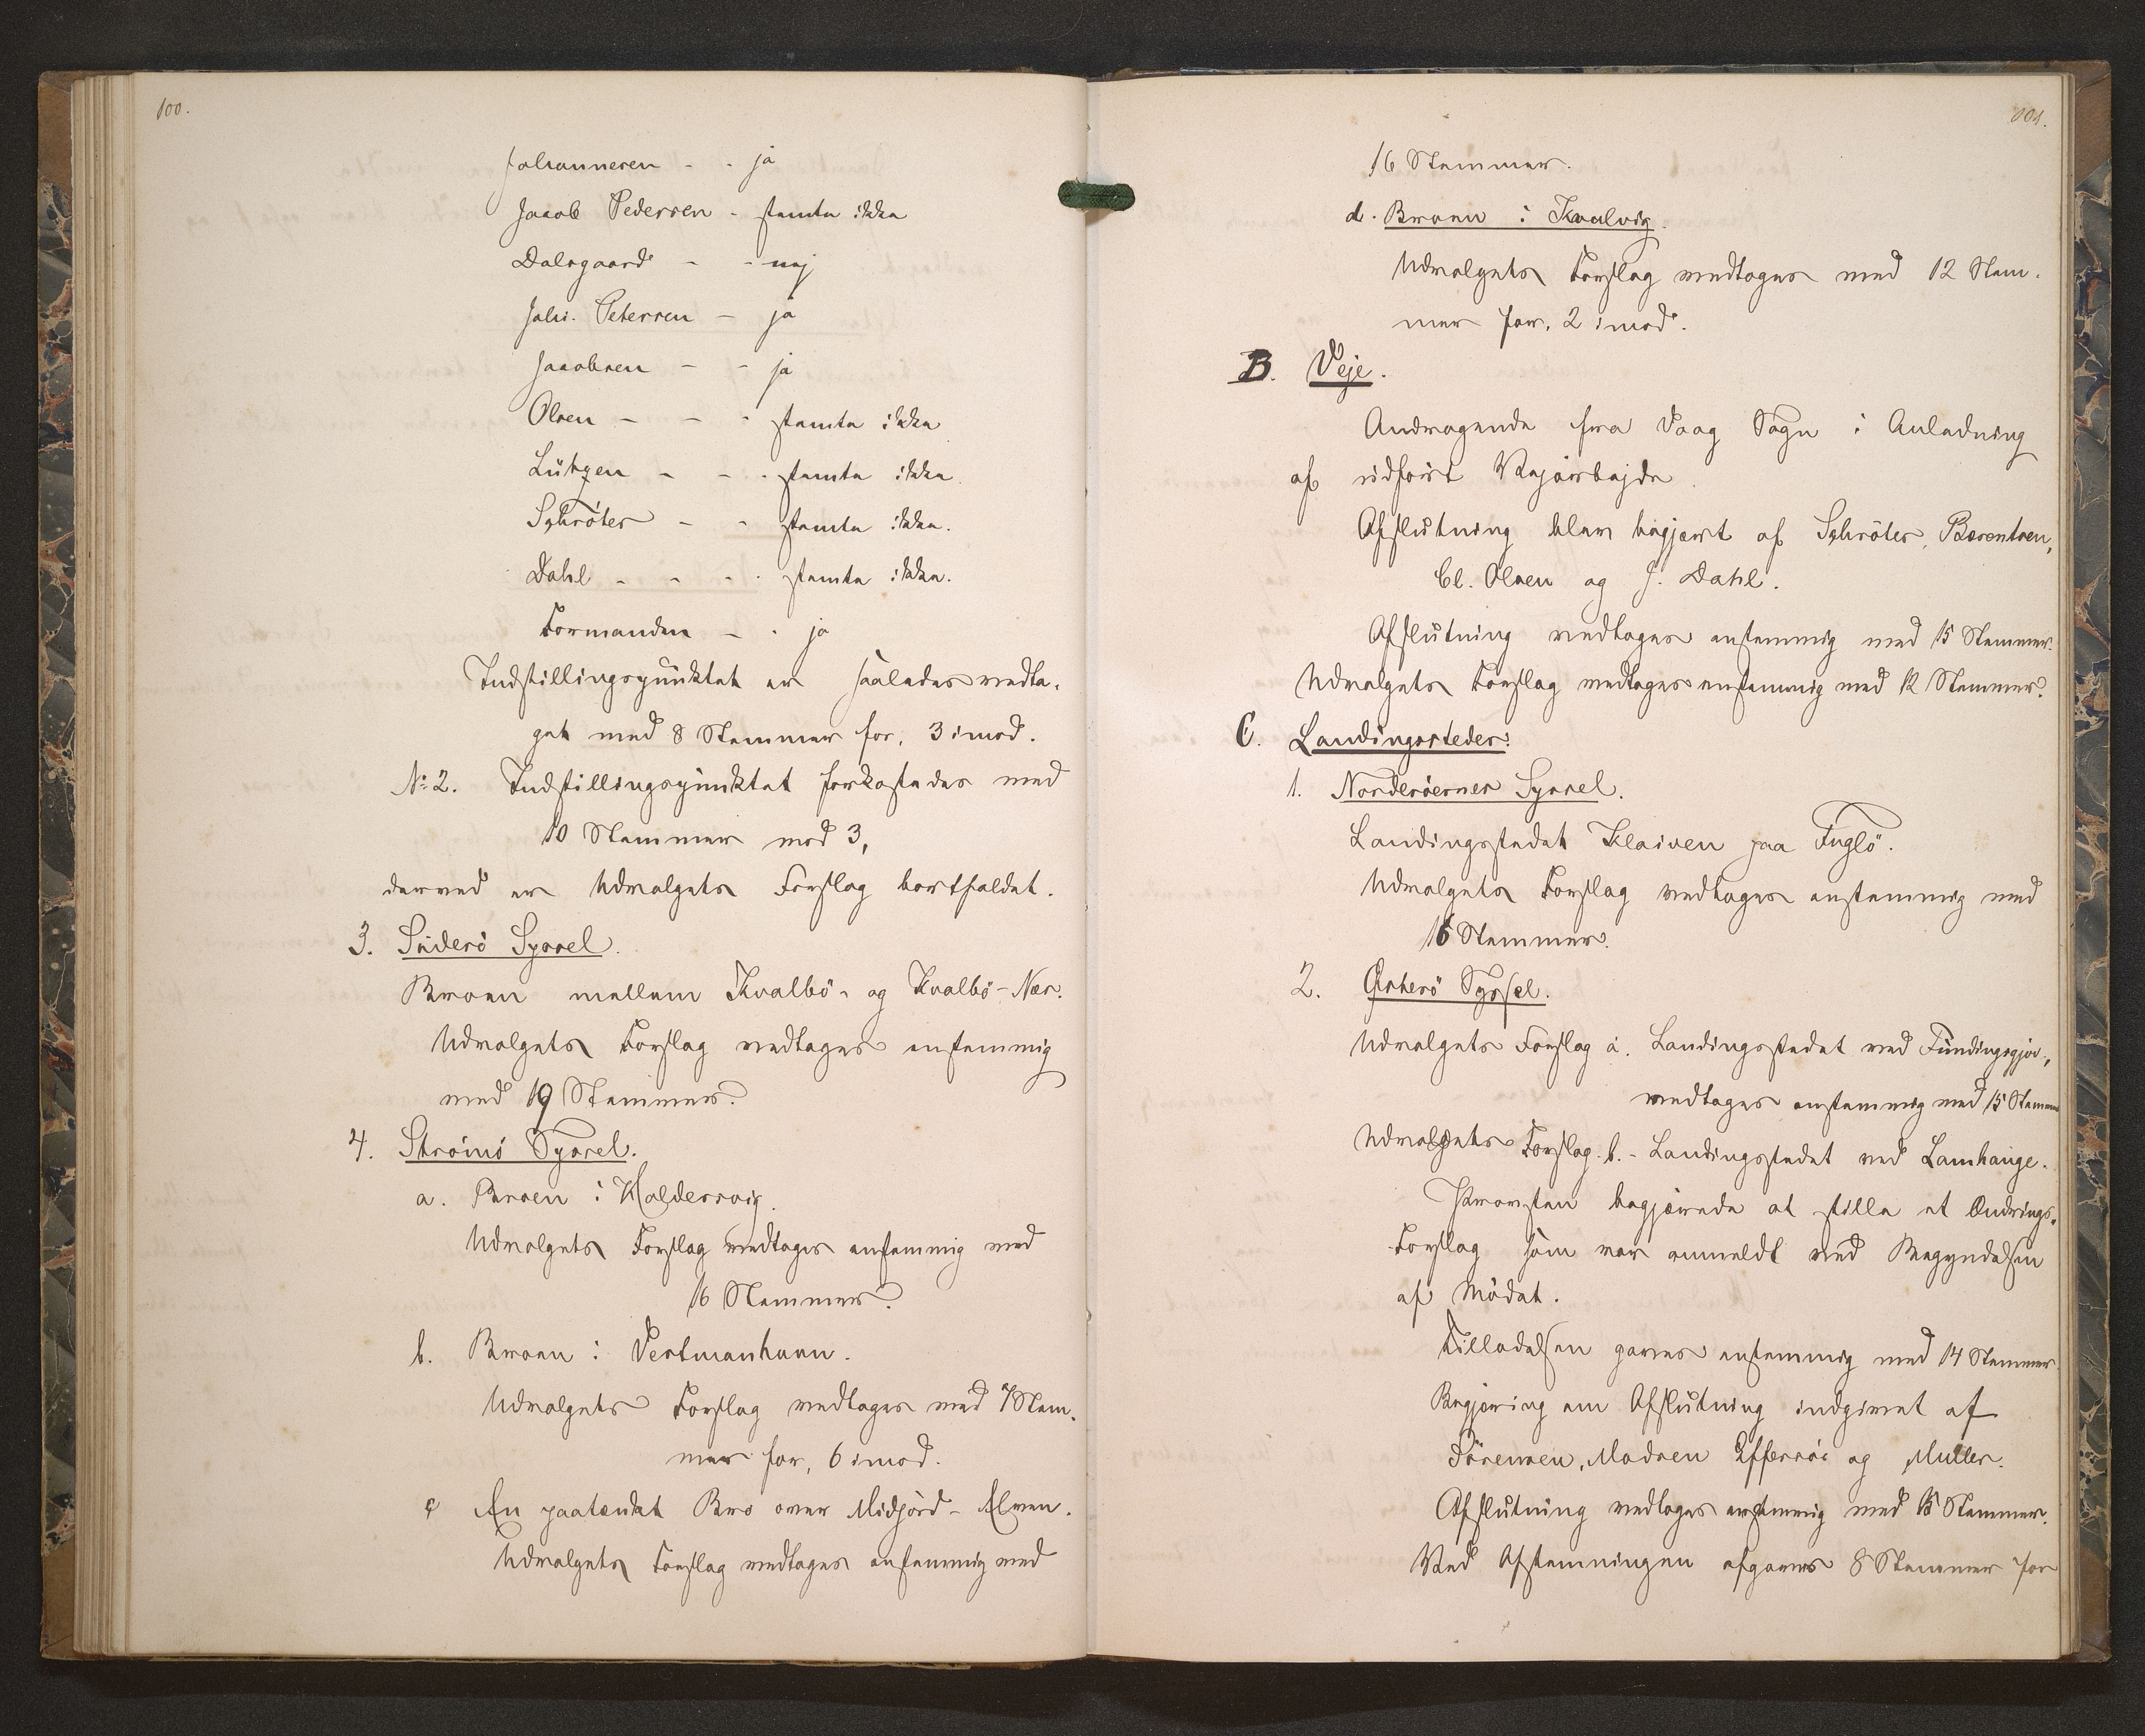 100.
Johannesen - - ja
Jacob Pedersen - stemte ikke
Dalsgaard - - nej
Johs. Petersen - ja
Jacobsen - - ja
Olsen - - - stemte ikke
Lützen - - - stemte ikke.
Schröter - - stemte ikke.
Dahl - - - - stemte ikke.
Formanden - - ja
Indstillingspunktet er saaledes vedta-
get med 8 Stemmer for, 3 imod.
No 2. Indstillingspunktet forkastedes med
10 Stemmer mod 3,
derved er Udvalgets Forslag bortfaldet.
3. Süderö Syssel.
Broen mellem Kvalbö- og Kvalbö-Næs.
Udvalgets Forslag vedtages enstemmig
med 19 Stemmer.
4. Strömö Syssel.
a. Broen i Haldersvig.
Udvalgets Forslag vedtages enstemmig med
16 Stemmer.
b. Broen i Vestmanhavn.
Udvalgets Forslag vedtages med 7 Stem-
mer for, 6 imod.
c En paatænkt Bro over Midjord-Elven.
Udvalgets Forslag vedtages enstemmig med
101.
16 Stemmer.
d. Broen i Kvalvig.
Udvalgets Forslag vedtages med 12 Stem-
mer for, 2 imod.
B. Veje.
Andragende fra Vaag Sogn i Anledning
af udført Vejarbejde.
Afslutning blev begjært af Schröter, Bærentsen,
Cl. Olsen og J. Dahl.
Afslutning vedtages enstemmig med 15 Stemmer.
Udvalgets Forslag vedtages enstemmig med 12 Stemmer.
C. Landingssteder:
1. Norderöernes Syssel.
Landingsstedet Kleiven paa Fuglö.
Udvalgets Forslag vedtages enstemmig med
16 Stemmer.
2. Østerö Syssel.
Udvalgets Forslag a. Landingsstedet ved Fundingsgjov,
vedtages enstemmig med 15 Stemmer
Udvalgets Forslag b. - Landingsstedet ved Lamhauge.
Provsten begjærede at stille et Ændrings-
Forslag som var anmeldt ved Begyndelsen
af Mödet.
Tilladelsen gaves enstemmig med 14 Stemmer.
Begjæring om Afslutning indgivet af
Sörensen, Madsen Effersöe og Müller.
Afslutning vedtages enstemmig med 15 Stemmer.
Ved Afstemningen afgaves 8 Stemmer for